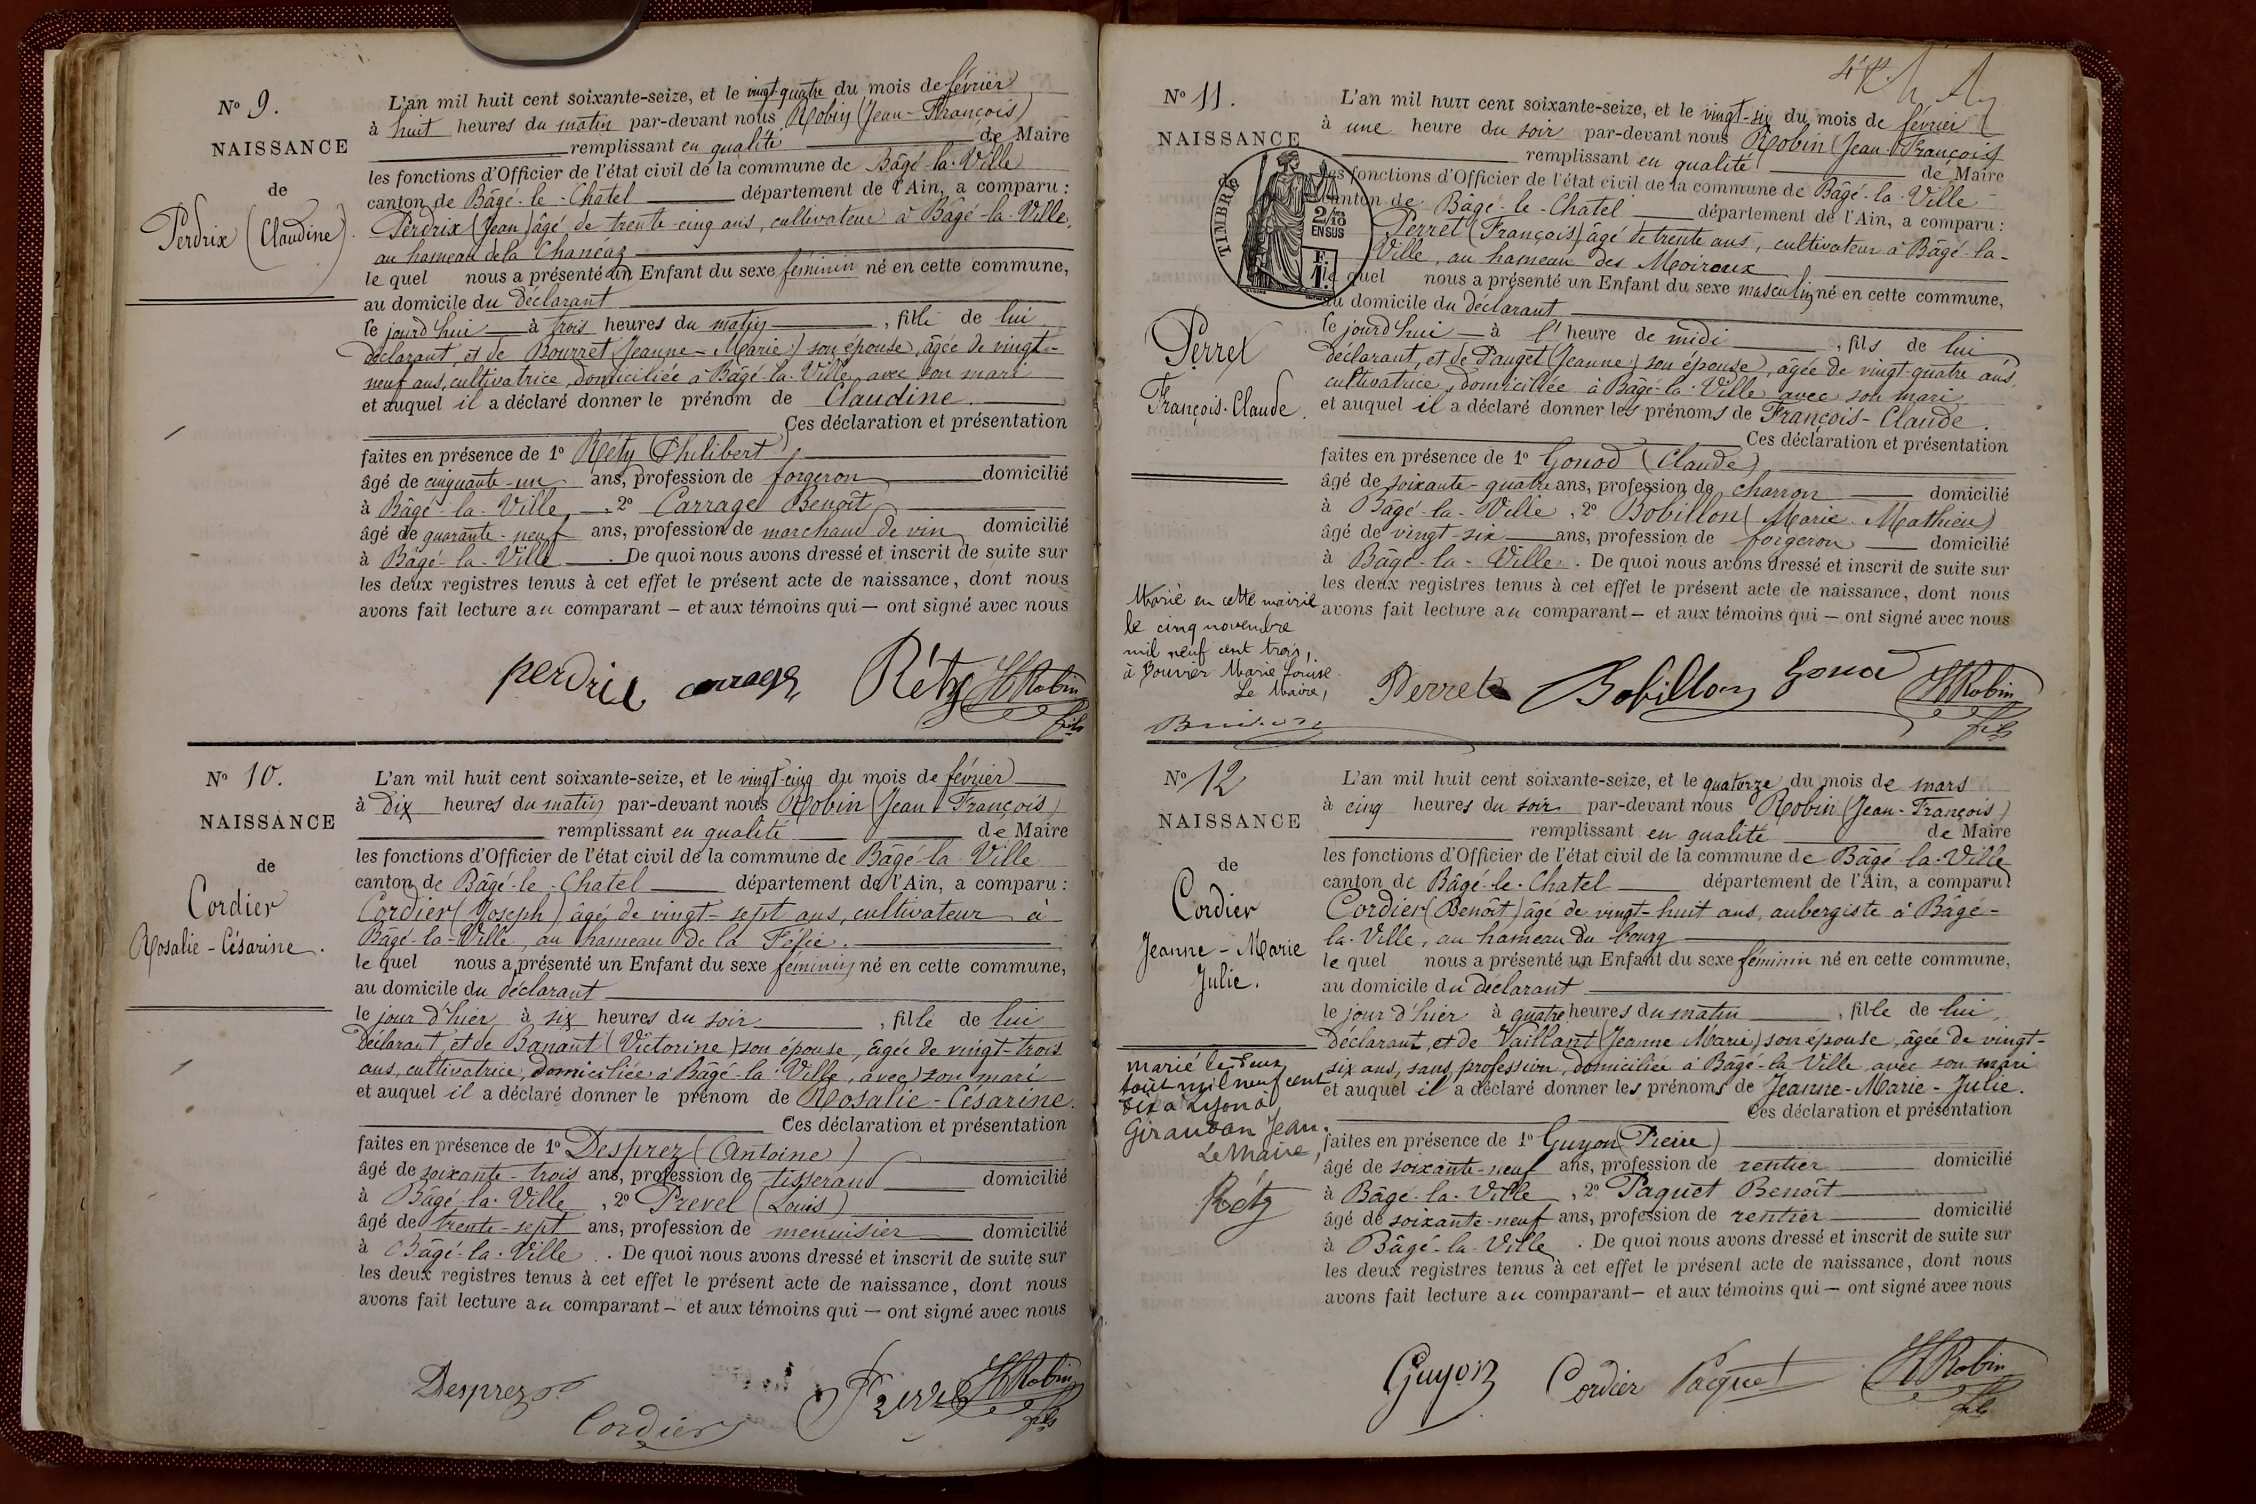 N° 9.
NAISSANCE
de
Perdrix (Claudine).
L'an mil huit cent soixante-seize, et le vingt-quatre du mois de février
à huit heures du matin par-devant nous Robin (Jean-François)
remplissant en qualité de Maire
les fonctions d'Officier de l'état civil de la commune de Bâgé-la-Ville
canton de Bâgé-le-Chatel département de l'Ain, a comparu :
Perdrix (Jean) âgé de trente-cinq ans, cultivateur à Bâgé-la-Ville,
au hameau de la Chanéaz
le quel nous a présenté un Enfant du sexe féminin né en cette commune,
au domicile du déclarant
le jourd'hui à trois heures du matin, fille de lui
déclarant, et de Bourret (Jeanne-Marie) son épouse, âgée de vingt-
neuf ans, cultivatrice, domiciliée à Bâgé-la-Ville avec son mari
et auquel il a déclaré donner le prénom de Claudine.
Ces déclaration et présentation
faites en présence de 1° Réty (Philibert)
âgé de cinquante-un ans, profession de forgeron domicilié
à Bâgé-la-Ville, 2° Carrage Benoît
âgé de quarante-neuf ans, profession de marchand de vin domicilié
à Bâgé-la-Ville. De quoi nous avons dressé et inscrit de suite sur
les deux registres tenus à cet effet le présent acte de naissance, dont nous
avons fait lecture au comparant – et aux témoins qui – ont signé avec nous
perdrix carrage Réty Robin
fils
N° 10.
NAISSANCE
de
Cordier
Rosalie-Césarine.
L'an mil huit cent soixante-seize, et le vingt-cinq du mois de février
à dix heures du matin par-devant nous Robin (Jean-François)
remplissant en qualité de Maire
les fonctions d'Officier de l'état civil de la commune de Bâgé-la-Ville
canton de Bâgé-le-Chatel département de l'Ain, a comparu :
Cordier (Joseph) âgé de vingt-sept ans, cultivateur à
Bâgé-la-Ville, au hameau de la Félie.
le quel nous a présenté un Enfant du sexe féminin né en cette commune,
au domicile du déclarant
le jour d'hier à six heures du soir, fille de lui
déclarant, et de Banant (Victorine) son épouse, âgée de vingt-trois
ans, cultivatrice, domiciliée à Bâgé-la-Ville, avec son mari
et auquel il a déclaré donner le prénom de Rosalie-Césarine.
Ces déclaration et présentation
faites en présence de 1° Desprez (Antoine)
âgé de soixante-trois ans, profession de tisserand domicilié
à Bâgé-la-Ville, 2° Prevel (Louis)
âgé de trente-sept ans, profession de menuisier domicilié
à Bâgé-la-Ville. De quoi nous avons dressé et inscrit de suite sur
les deux registres tenus à cet effet le présent acte de naissance, dont nous
avons fait lecture au comparant – et aux témoins qui – ont signé avec nous
Desprez Prevel Robin
Cordier fils
N° 11.
NAISSANCE
de
Perret
François-Claude.
TIMBRE
2/10
EN SUS
L'an mil huit cent soixante-seize, et le vingt-six du mois de février
à une heure du soir par-devant nous Robin (Jean-François)
remplissant en qualité de Maire
les fonctions d'Officier de l'état civil de la commune de Bâgé-la-Ville
canton de Bâgé-le-Chatel département de l'Ain, a comparu :
Perret (François) âgé de trente ans, cultivateur à Bâgé-la-
Ville, au hameau des Moiroux
le quel nous a présenté un Enfant du sexe masculin né en cette commune,
au domicile du déclarant
le jourd'hui à l'heure de midi, fils de lui
déclarant, et de Pauget (Jeanne) son épouse, âgée de vingt-quatre ans,
cultivatrice, domiciliée à Bâgé-la-Ville avec son mari
et auquel il a déclaré donner les prénoms de François-Claude.
Ces déclaration et présentation
faites en présence de 1° Gonod (Claude)
âgé de soixante-quatre ans, profession de charron domicilié
à Bâgé-la-Ville, 2° Bobillon (Marie-Mathieu)
âgé de vingt-six ans, profession de forgeron domicilié
à Bâgé-la-Ville. De quoi nous avons dressé et inscrit de suite sur
les deux registres tenus à cet effet le présent acte de naissance, dont nous
avons fait lecture au comparant – et aux témoins qui – ont signé avec nous
Marié en cette mairie
le cinq novembre
mil neuf cent trois,
à Bouvier Marie Louise
Le Maire,
Perret Bobillon Gonod Robin
fils
N° 12
NAISSANCE
de
Cordier
Jeanne-Marie
Julie.
L'an mil huit cent soixante-seize, et le quatorze du mois de mars
à cinq heures du soir par-devant nous Robin (Jean-François)
remplissant en qualité de Maire
les fonctions d'Officier de l'état civil de la commune de Bâgé-la-Ville
canton de Bâgé-le-Chatel département de l'Ain, a comparu :
Cordier (Benoît) âgé de vingt-huit ans, aubergiste à Bâgé-
la-Ville, au hameau du bourg
le quel nous a présenté un Enfant du sexe féminin né en cette commune,
au domicile du déclarant
le jour d'hier à quatre heures du matin, fille de lui,
déclarant, et de Vaillant (Jeanne Marie) son épouse, âgée de vingt-
six ans, sans profession, domiciliée à Bâgé-la-Ville avec son mari
et auquel il a déclaré donner les prénoms de Jeanne-Marie-Julie.
Ces déclaration et présentation
faites en présence de 1° Guyon (Pierre)
âgé de soixante-neuf ans, profession de rentier domicilié
à Bâgé-la-Ville, 2° Paquet Benoît
âgé de soixante-neuf ans, profession de rentier domicilié
à Bâgé-la-Ville. De quoi nous avons dressé et inscrit de suite sur
les deux registres tenus à cet effet le présent acte de naissance, dont nous
avons fait lecture au comparant – et aux témoins qui – ont signé avec nous
marié le deux
août mil neuf cent
dix à Lyon à
Giraudan Jean.
Le Maire,
Réty
Guyon Cordier Paquet Robin
fils